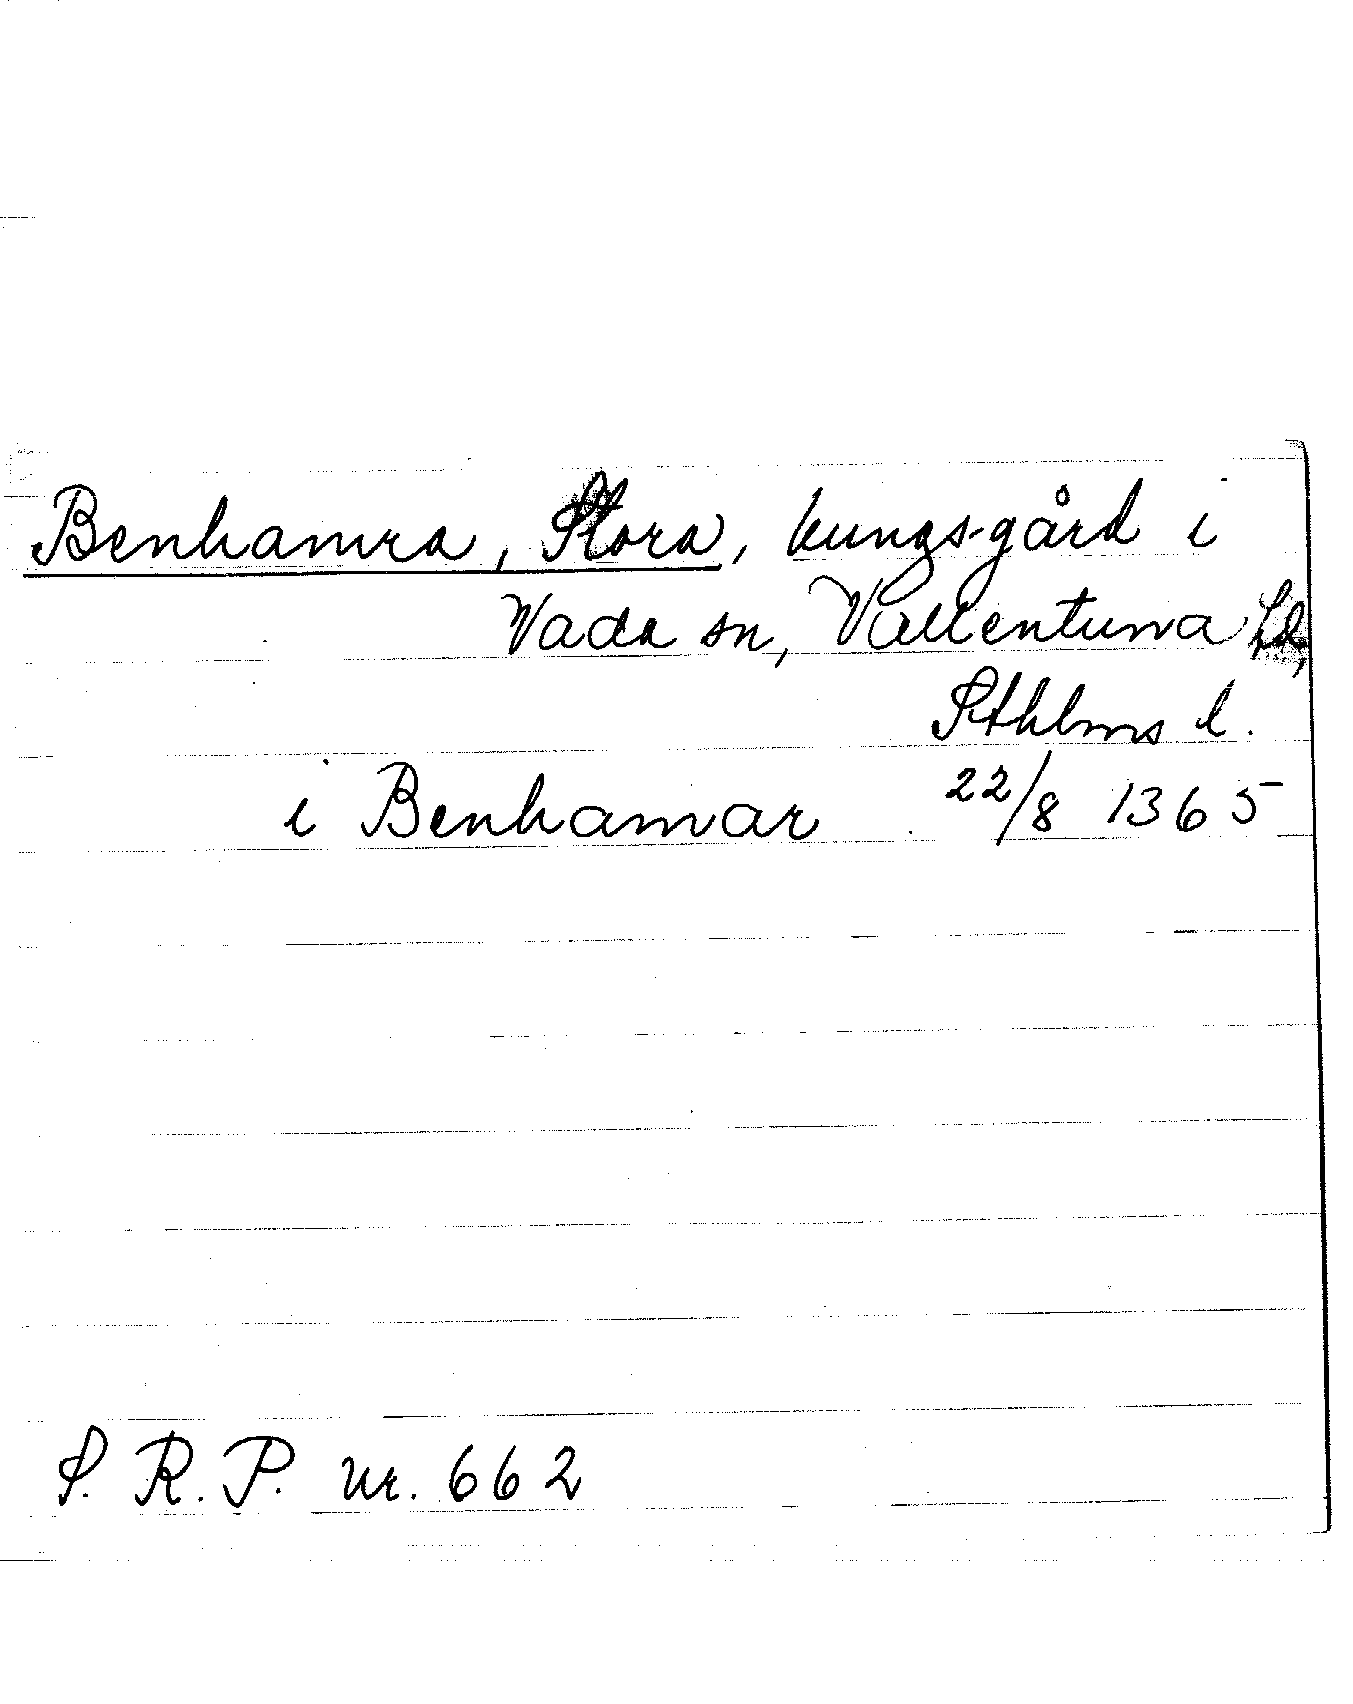 Benhamra, Stora, kungsgård i
Vada sn, Vallentuna
Sthlms l.
i Benhamar 22/8 1365
S. R. P. nr. 662